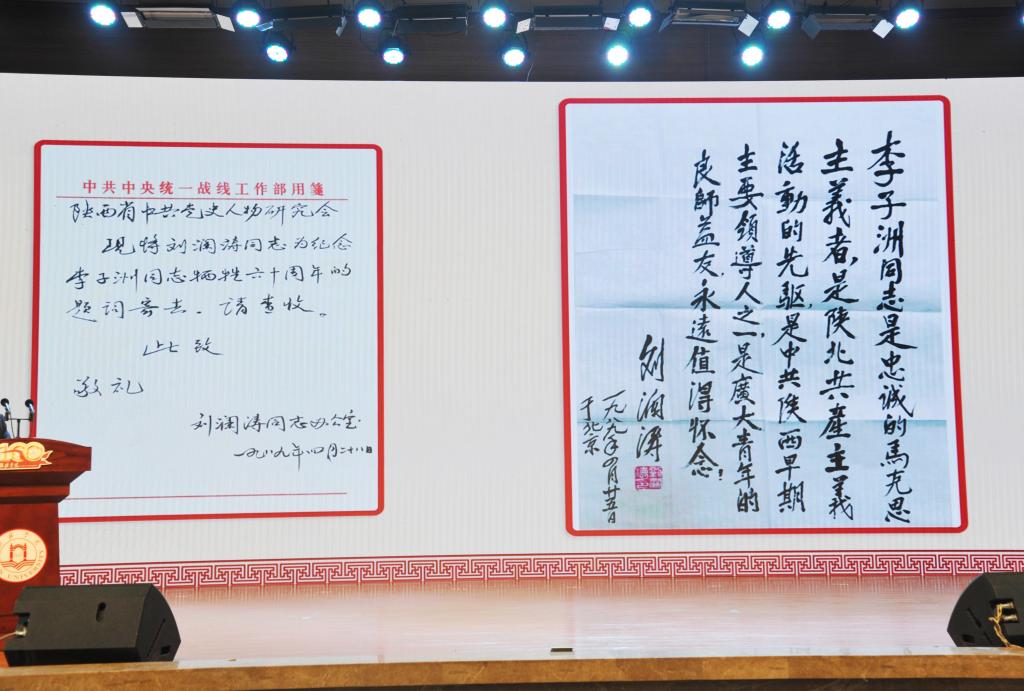 中共中央统一战线工作部用笺
陕西省中共党史人物研究会
现将刘澜涛同志为纪念
李子洲同志牺牲六十周年的
题词寄去。请查收。
此致
敬礼
刘澜涛同志办公室
一九八九年四月二十八日
李子洲同志是忠诚的馬克思
主義者，是陕北共產主義
活動的先駆，是中共陕西早期
主要領導人之一，是廣大青年的
良師益友，永遠值得怀念！
刘澜涛
一九八九年四月廿五日
于北京